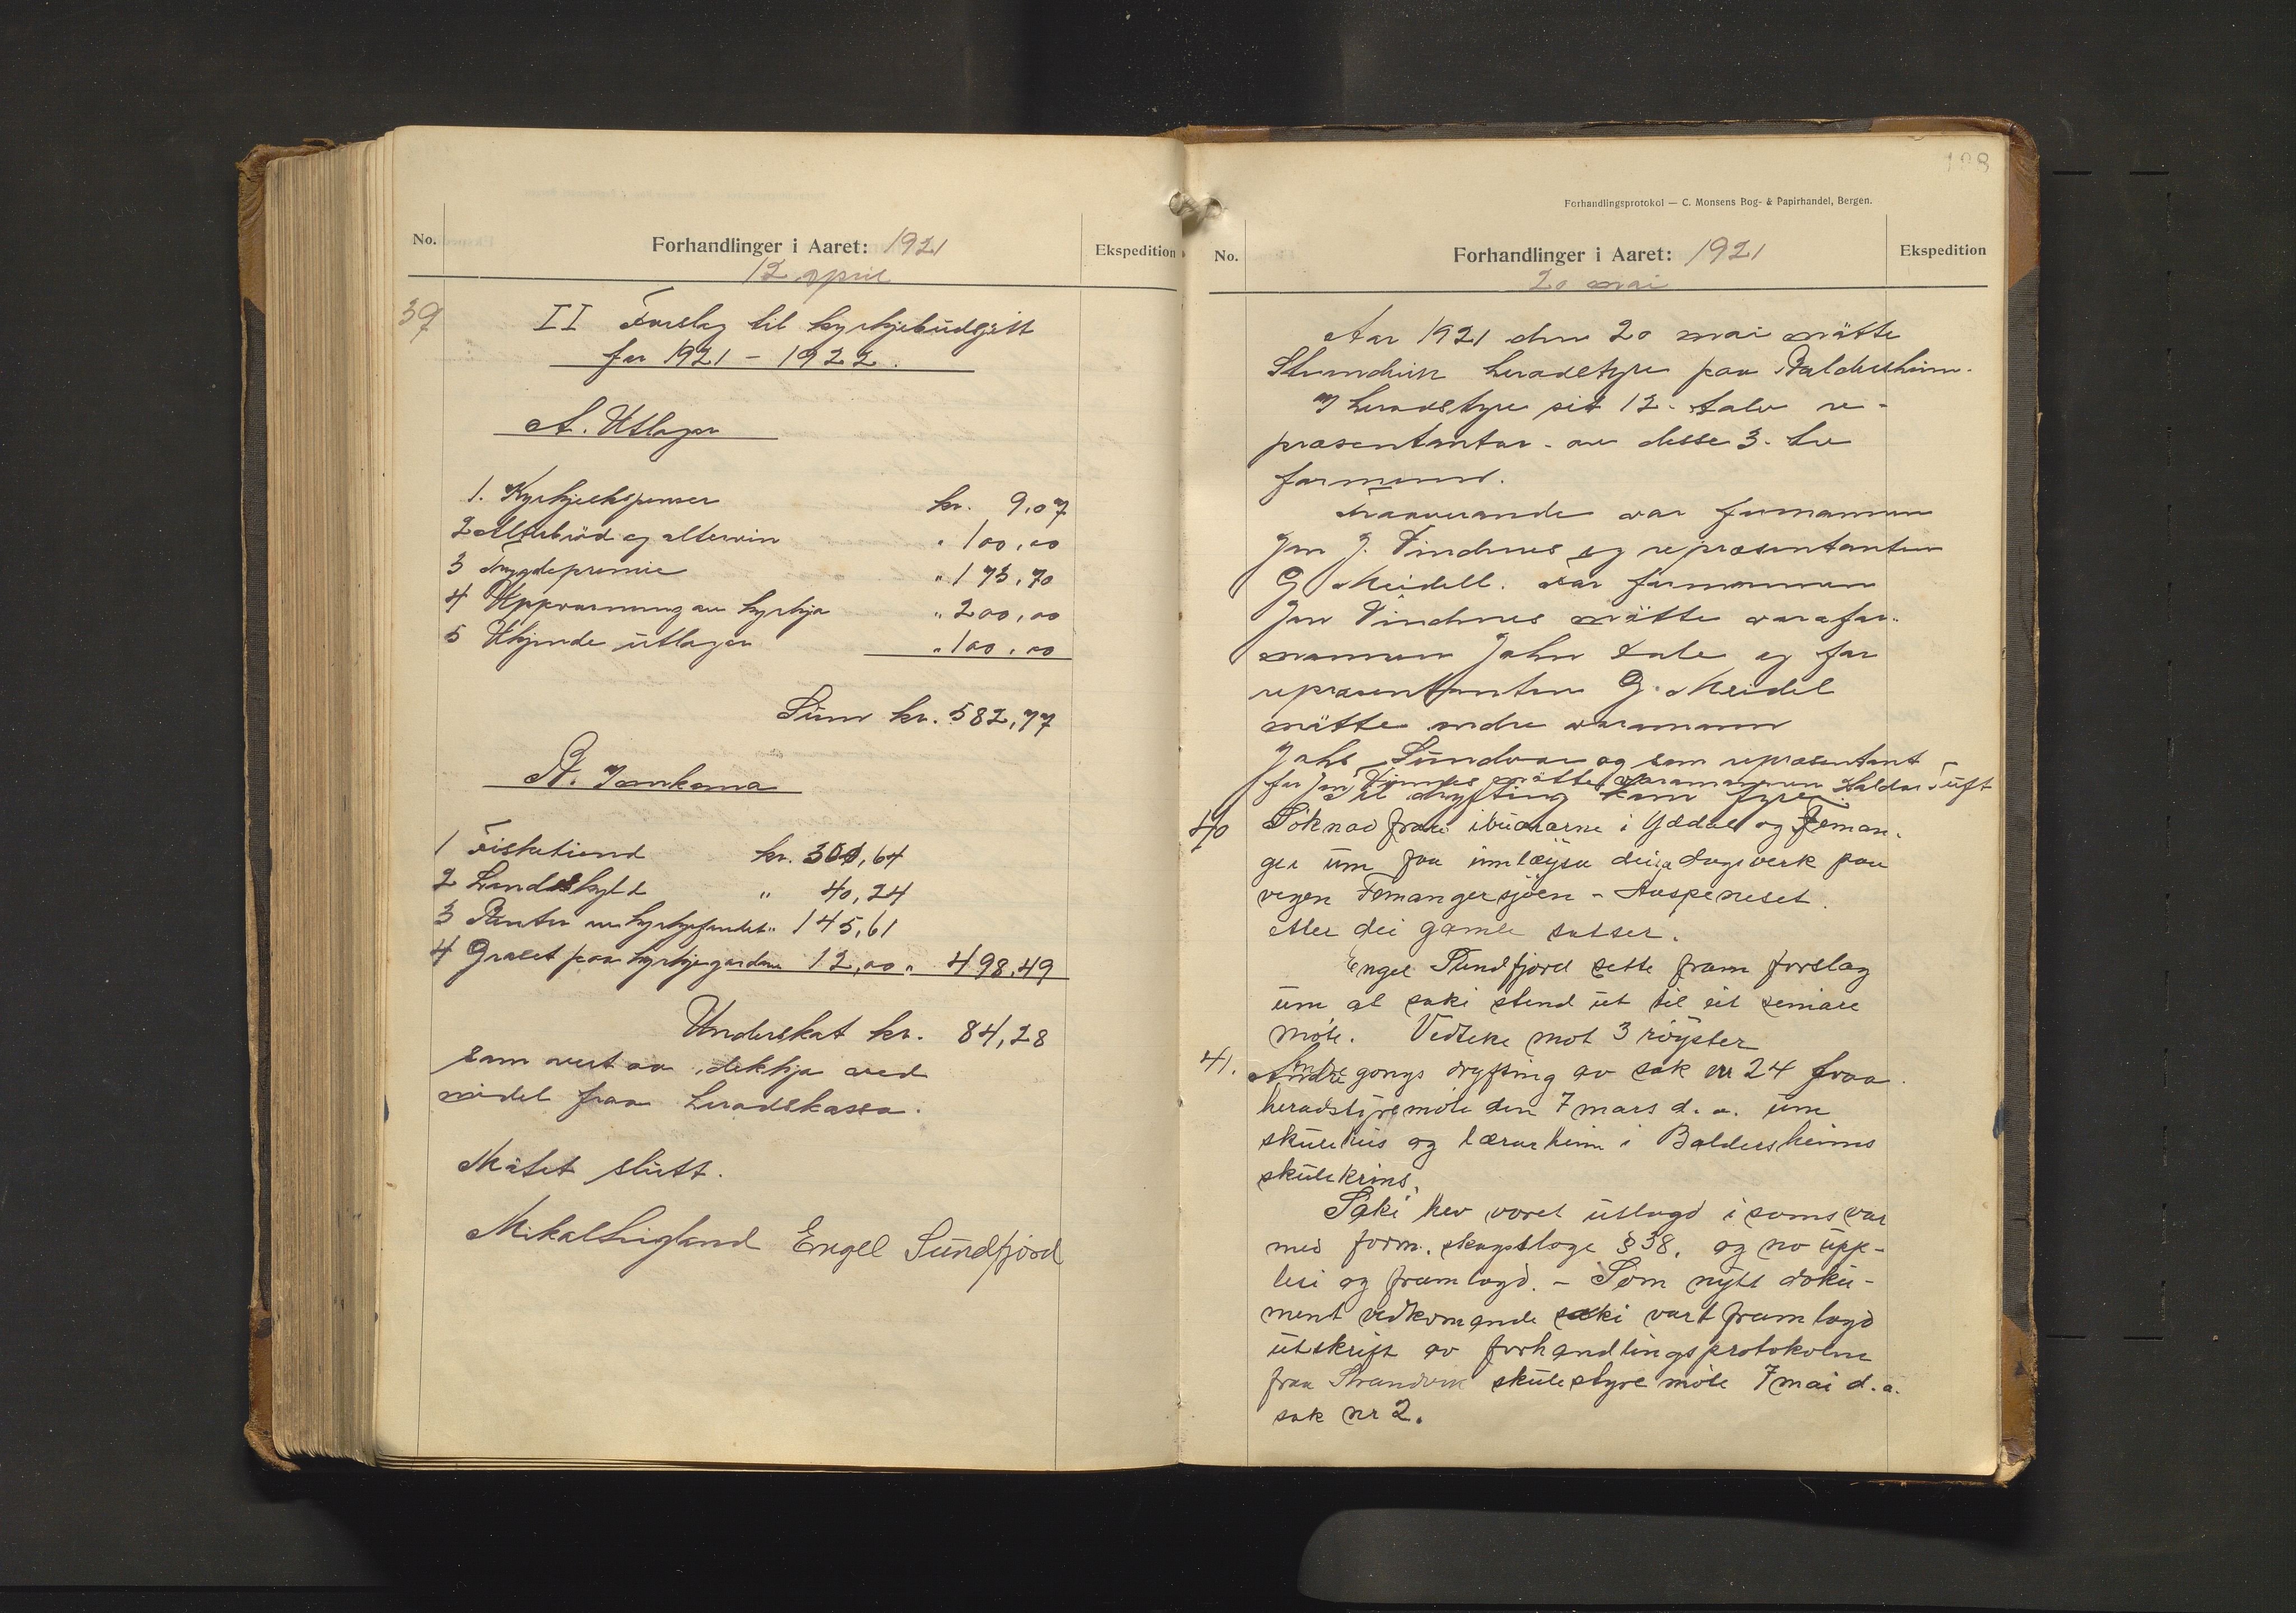 No.
Forhandlinger i Aaret: 1921
Ekspedition
12 april
39
II Forslag til kyrkjebudgett
for 1921 - 1922.
A. Utlagor
1. Kyrkjeekspenser kr. 9,07
2 Alterbröd og altervin " 100,00
3 Trygdepremie " 173,70
4 Uppvarming av kyrkja " 200,00
5 Ukjende utlagor " 100,00
Sum kr. 582,77
B. Innkoma
1 Fisketiend kr. 300,64
2 Landskyld " 40,24
3 Renter av kyrkjefondet " 145,61
4 Graset paa kyrkjegardane 12,00 " 498,49
Underskot kr. 84,28
som vert aa dekkja ved
midel fraa heradskassa.
Mötet slutt.
Mikal Lygland Engel Sundfjord
188
Forhandlingsprotokol — C. Monsens Bog- & Papirhandel, Bergen.
No.
Forhandlinger i Aaret: 1921
Ekspedition
20 mai
Aar 1921 den 20 mai mötte
Strandvik heradstyre paa Baldersheim.
I heradstyre sit 12 - tolv re-
præsentantar - av desse 3 - tre
formenn.
Fraaverande var formannen
Jon J. Vindenes og repræsentanten
G Meidell. For formannen
Jon Vindenes mötte varafor-
mannen John Dale og for
repræsentanten G. Meidel
mötte andre varamann
Johs Sundvor og som repræsentant
for Jon Vinnes mötte varamannen Haldor Tuft
Til dryfting kom fyre:
40 Söknad fraa ibuararne i Yddal og Feman-
ger um faa innlöysa deira dagsverk paa
vegen Femangersjöen - Aaspeneset.
etter dei gamle satser.
Engel Sundfjord sette fram forslag
um at saki stend ut til eit seniare
möte. Vedteke mot 3 röyster
41. Andre gongs dryfting av sak nr 24 fraa
heradstyremöte den 7 mars d. a. um
skulehus og lærarheim i Baldersheims
skulekrins.
Saki hev voret utlagd i samsvar
med form. skapsloge § 38, og no upp-
lesi og framlagd. - Som nytt doku-
ment vedkomande saki vart framlagd
utskrift av forhandlingsprotokolen
fraa Strandvik skulestyre möte 7 mai d. a.
sak nr 2.